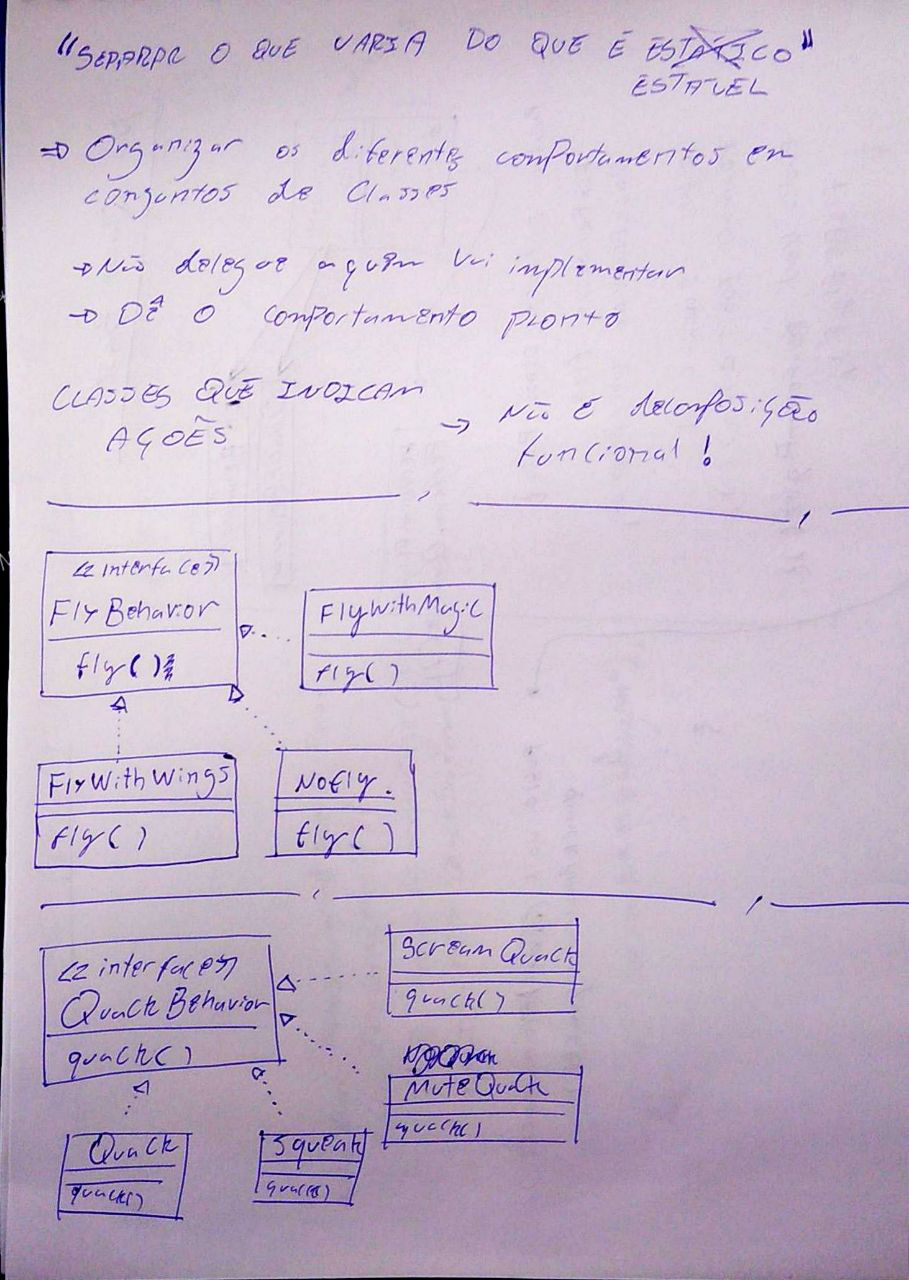 "SEPARAR O QUE VARIA DO QUE É ESTÁTICO"
ESTAVEL
=> Organizar os diferentes comportamentos em
conjuntos de Classes
-> Não delegue a quem vai implementar
-> Dê o comportamento pronto
CLASSES QUE INDICAM
AÇÕES
-> Não é decomposição
funcional!
<<interface>>
FlyBehavior
fly()
FlyWithMagic
fly()
FlyWithWings
fly()
NoFly.
fly()
<<interface>>
QuackBehavior
quack()
ScreamQuack
quack()
MuteQuack
quack()
Quack
quack()
Squeak
quack()